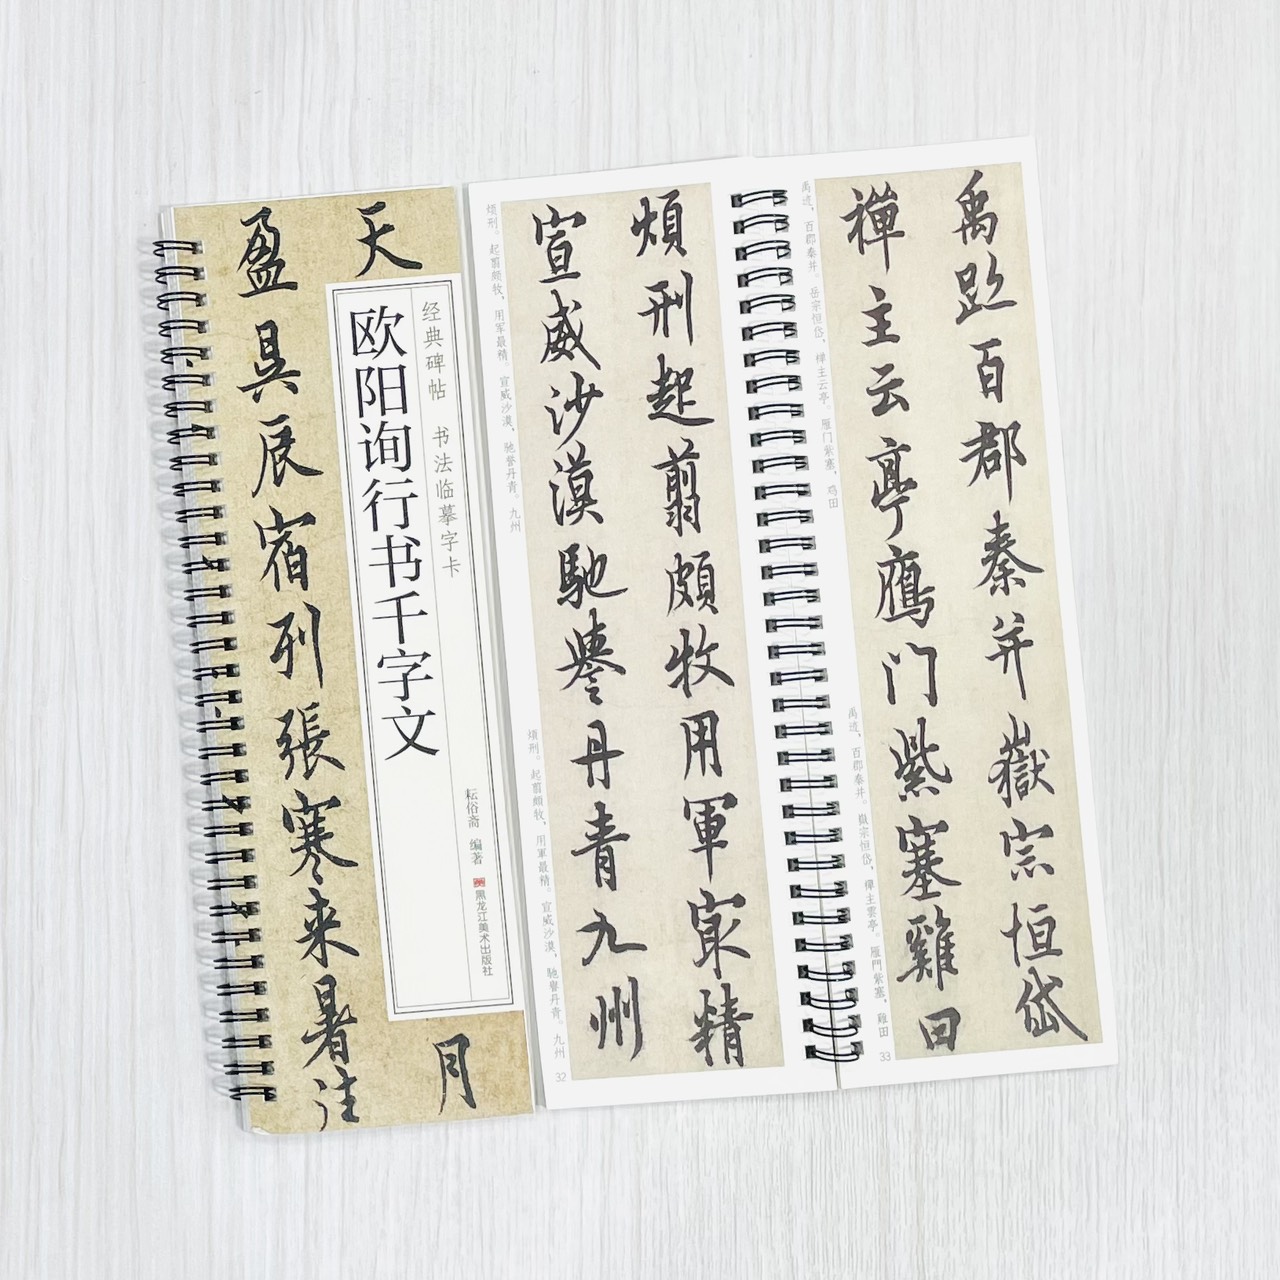 天
月
盈昃辰宿列張寒来暑往
经典碑帖 书法临摹字卡
欧阳询行书千字文
耘俗斋 编著
黑龙江美术出版社
煩刑起翦頗牧用軍寂精
宣威沙漠馳譽丹青九州
烦刑。起翦颇牧，用军最精。宣威沙漠，驰誉丹青。九州
煩刑。起翦頗牧，用軍最精。宣威沙漠，馳譽丹青。九州
32
禹跡百郡秦并嶽宗恒岱
禪主云亭鴈门紫塞雞田
禹迹，百郡秦并。岳宗恒岱，禅主云亭。雁门紫塞，鸡田
禹迹，百郡秦并。嶽宗恒岱，禪主雲亭。雁門紫塞，雞田
33